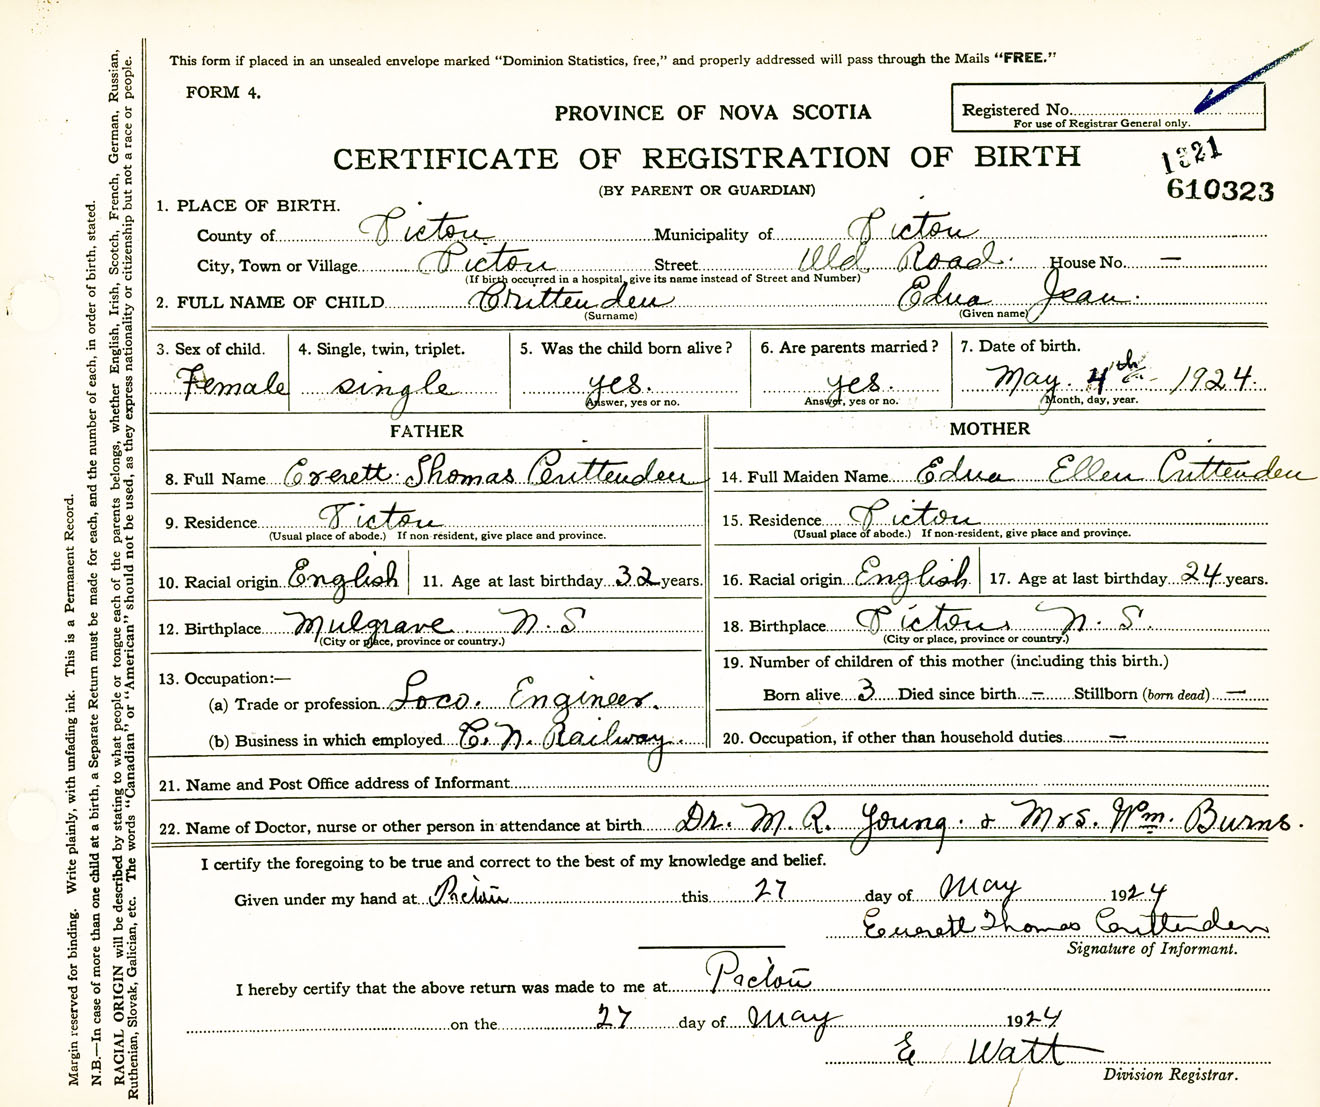 This form if placed in an unsealed envelope marked “Dominion Statistics, free,” and properly addressed will pass through the Mails “FREE.”
FORM 4.
PROVINCE OF NOVA SCOTIA
Registered No.
For use of Registrar General only.
CERTIFICATE OF REGISTRATION OF BIRTH
1321
(BY PARENT OR GUARDIAN)
610323
1. PLACE OF BIRTH.
County of Pictou Municipality of Pictou
City, Town or Village Pictou Street Old Road. House No. —
(If birth occurred in a hospital, give its name instead of Street and Number)
2. FULL NAME OF CHILD Crittenden Edna Jean.
(Surname) (Given name)
3. Sex of child. 4. Single, twin, triplet. 5. Was the child born alive? 6. Are parents married? 7. Date of birth.
Female single yes. yes. May. 4th 1924.
Answer, yes or no. Answer, yes or no. Month, day, year.
FATHER MOTHER
8. Full Name Everett Thomas Crittenden 14. Full Maiden Name Edna Ellen Crittenden
9. Residence Pictou 15. Residence Pictou
(Usual place of abode.) If non-resident, give place and province. (Usual place of abode.) If non-resident, give place and province.
10. Racial origin English 11. Age at last birthday 32 years. 16. Racial origin English 17. Age at last birthday 24 years.
12. Birthplace Mulgrave N.S 18. Birthplace Pictou, N.S.
(City or place, province or country.) (City or place, province or country.)
13. Occupation:— 19. Number of children of this mother (including this birth.)
(a) Trade or profession Loco. Engineer. Born alive 3 Died since birth – Stillborn (born dead) —
(b) Business in which employed C.N. Railway. 20. Occupation, if other than household duties —
21. Name and Post Office address of Informant
22. Name of Doctor, nurse or other person in attendance at birth Dr. M. R. Young. & Mrs. Wm. Burns.
I certify the foregoing to be true and correct to the best of my knowledge and belief.
Given under my hand at Pictou this 27 day of May 1924
Everett Thomas Crittenden
Signature of Informant.
I hereby certify that the above return was made to me at Pictou
on the 27 day of May 1924
E Watt
Division Registrar.
Margin reserved for binding. Write plainly, with unfading ink. This is a Permanent Record.
N.B.—In case of more than one child at a birth, a Separate Return must be made for each, and the number of each, in order of birth, stated.
RACIAL ORIGIN will be described by stating to what people or tongue each of the parents belongs, whether English, Irish, Scotch, French, German, Russian,
Ruthenian, Slovak, Galician, etc. The words “Canadian” or “American” should not be used, as they express nationality or citizenship but not a race or people.